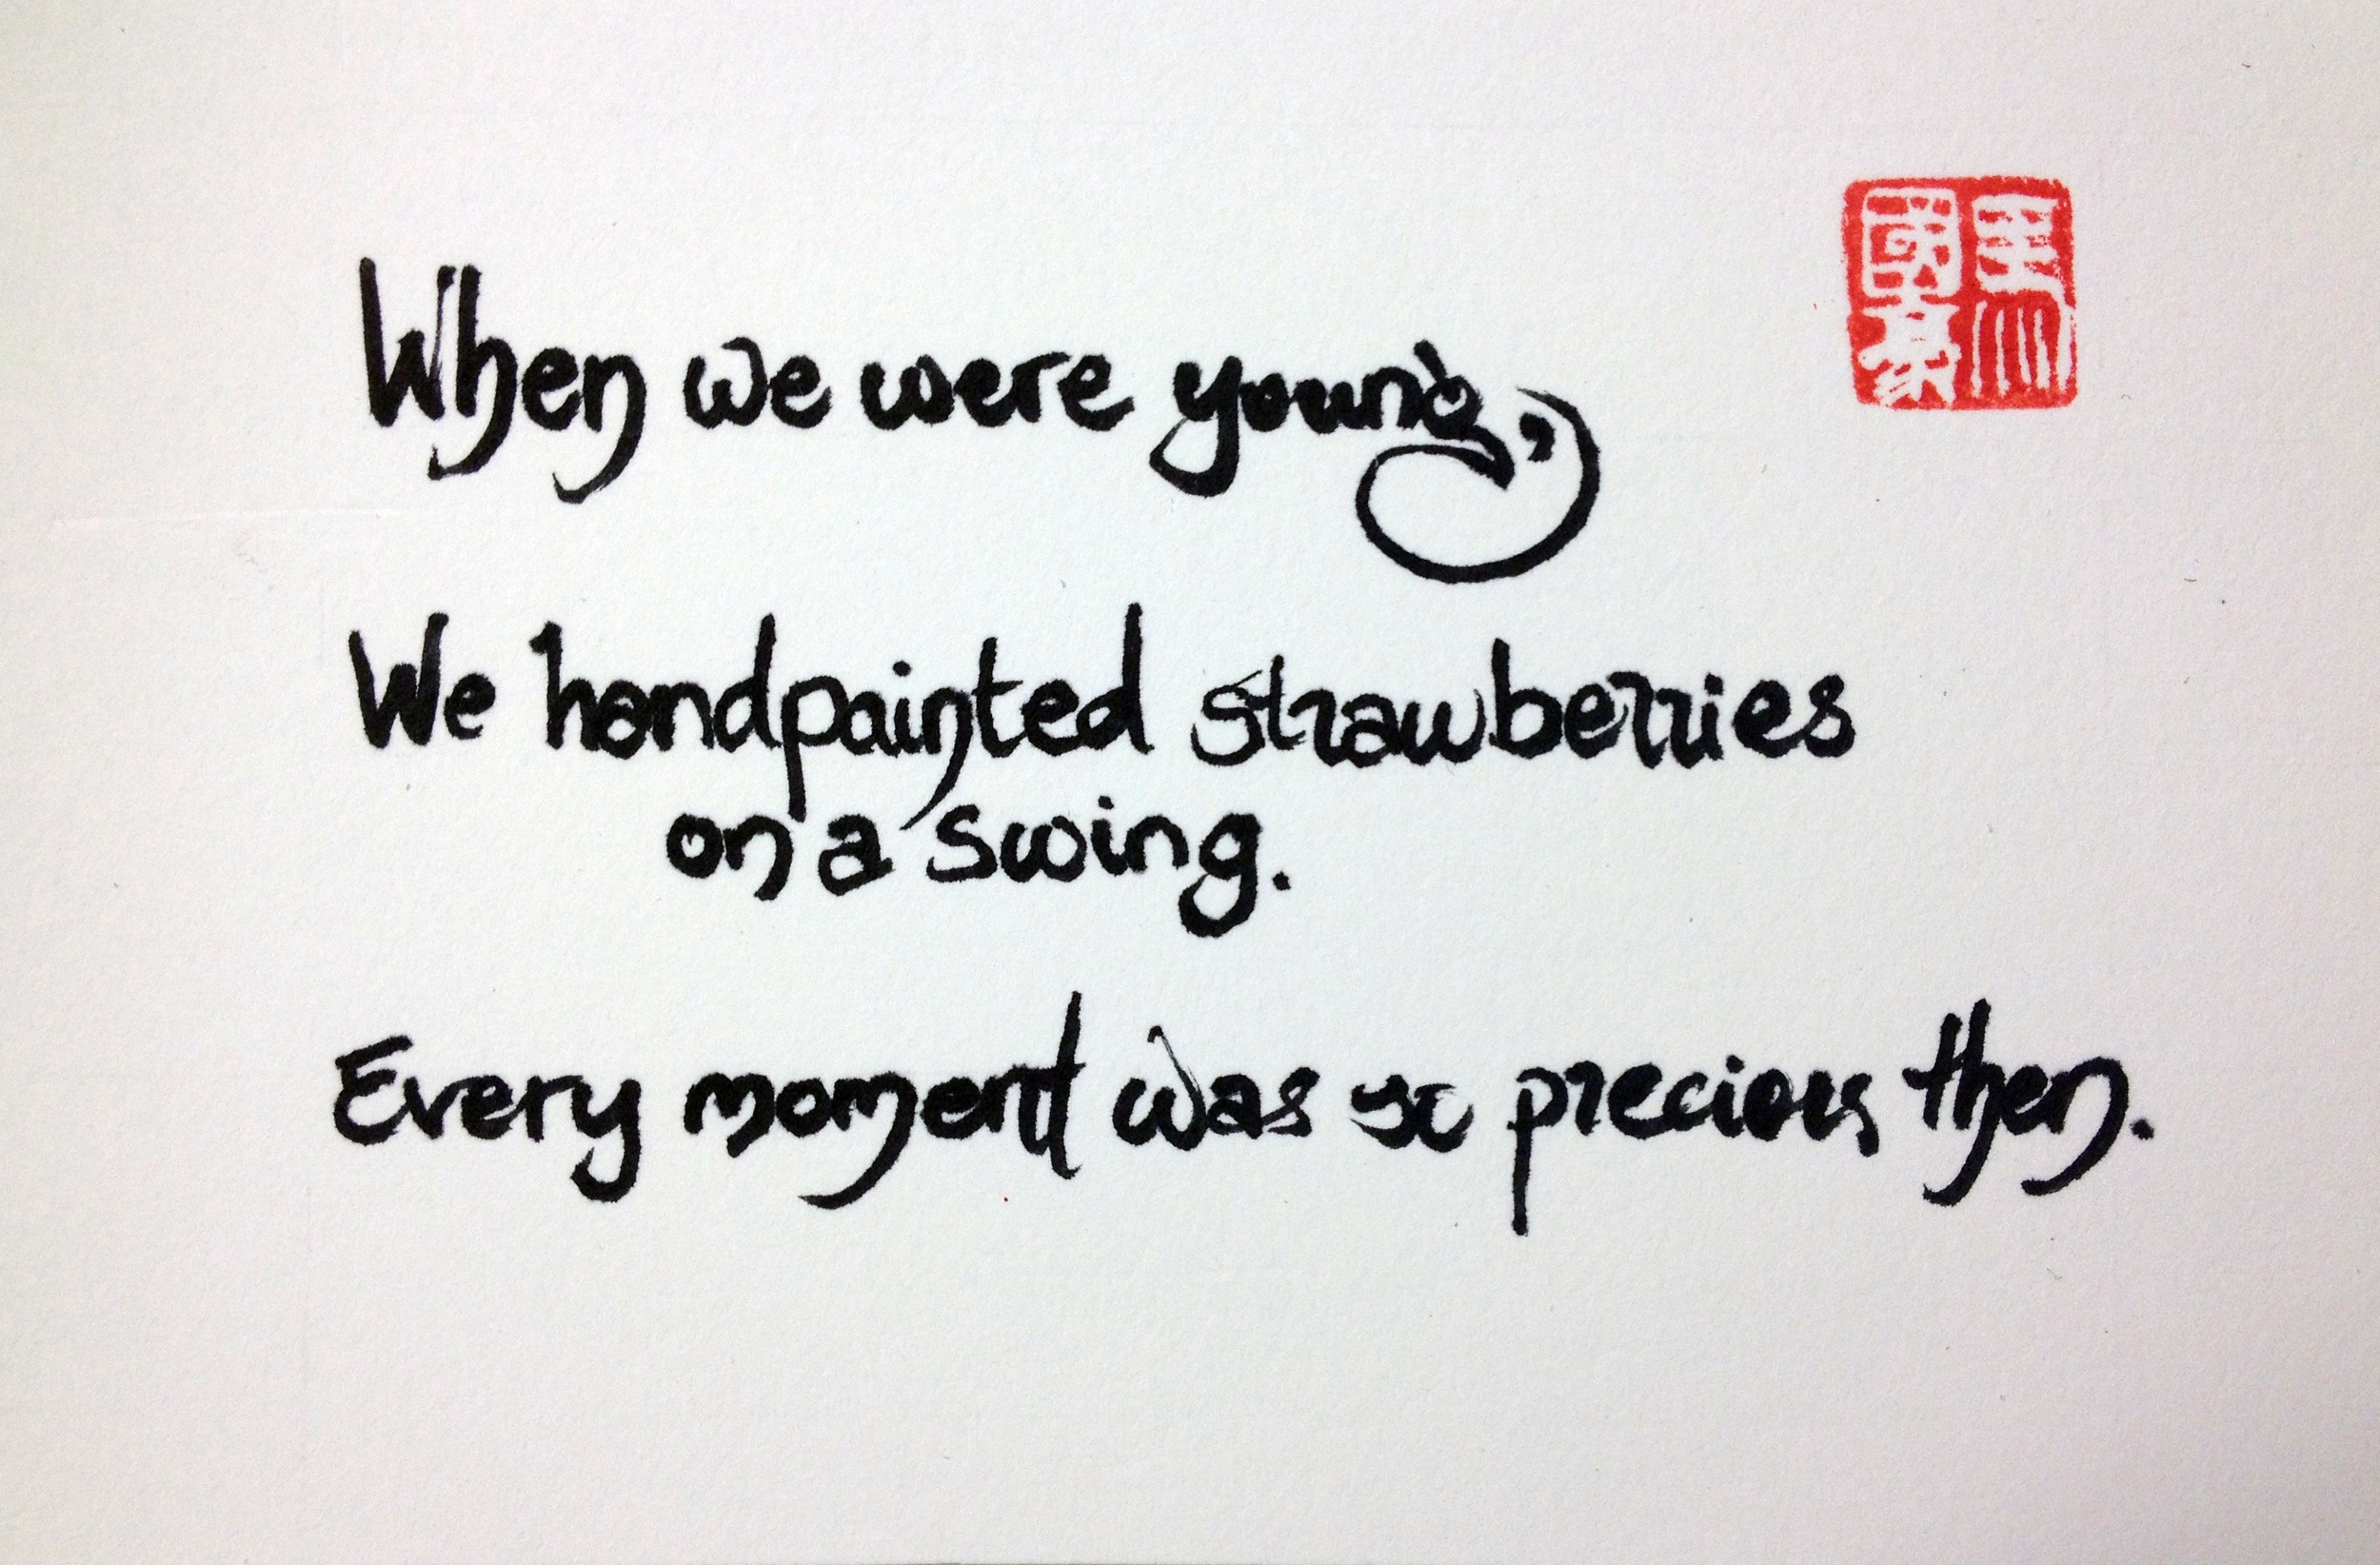 When we were young,
We handpainted strawberries
on a swing.
Every moment was so precious then.